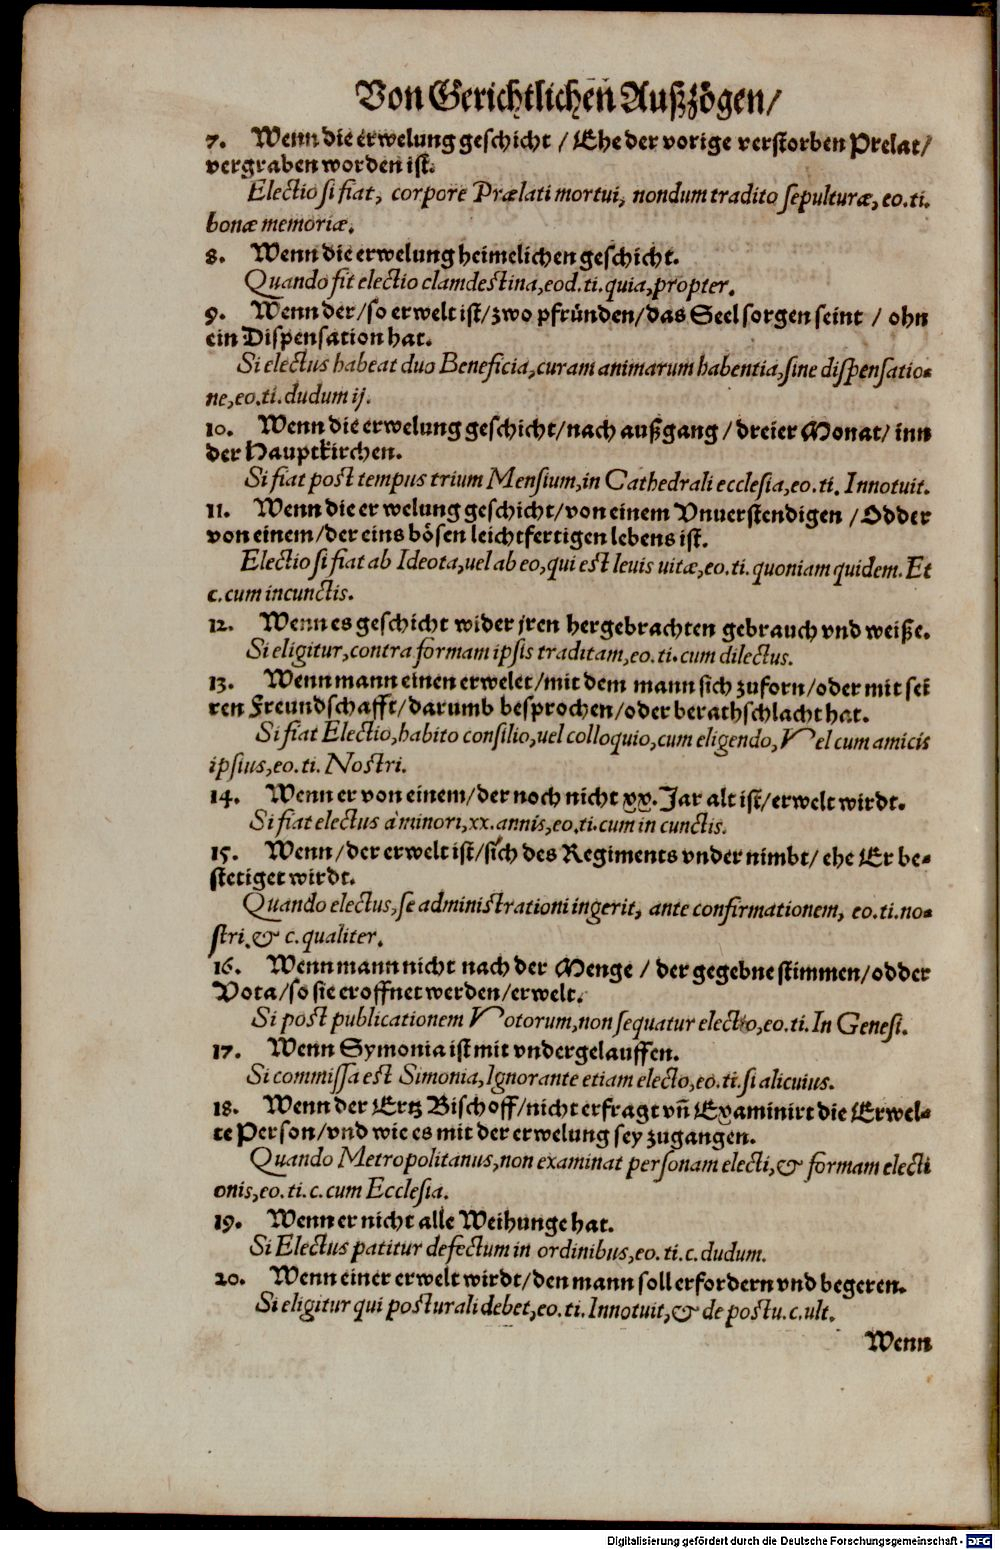 Von Gerichtlichen Außzögen/
7. Wenn die erwelung geschicht / Ehe der vorige verstorben Prelat/
vergraben worden ist.
Electio si fiat, corpore Prælati mortui, nondum tradito sepulturæ, eo. ti.
bonæ memoriæ.
8. Wenn die erwelung heimelichen geschicht.
Quando fit electio clamdestina, eod. ti. quia, propter.
9. Wenn der/so erwelt ist/zwo pfründen/das Seel sorgen seint / ohn
ein Dispensation hat.
Si electus habeat duo Beneficia, curam animarum habentia, sine dispensatio-
ne, eo. ti. dudum ij.
10. Wenn die erwelung geschicht/nach außgang / dreier Monat/ inn
der Hauptkirchen.
Si fiat post tempus trium Mensium, in Cathedrali ecclesia, eo. ti. Innotuit.
11. Wenn die er welung geschicht/von einem Vnuerstendigen / Odder
von einem/der eins bösen leichtfertigen lebens ist.
Electio si fiat ab Ideota, uel ab eo, qui est leuis uitæ, eo. ti. quoniam quidem. Et
c. cum incunctis.
12. Wenn es geschicht wider jren hergebrachten gebrauch vnd weiße.
Si eligitur, contra formam ipsis traditam, eo. ti. cum dilectus.
13. Wenn mann einen erwelet/mit dem mann sich zuforn/oder mit sei
ren Freundschafft/darumb besprochen/oder berathschlacht hat.
Si fiat Electio, habito consilio, uel colloquio, cum eligendo, Vel cum amicis
ipsius, eo. ti. Nostri.
14. Wenn er von einem/der noch nicht xx. Jar alt ist/erwelt wirdt.
Si fiat electus à minori, xx. annis, eo. ti. cum in cunctis.
15. Wenn/der erwelt ist/sich des Regiments vnder nimbt/ ehe Er be-
stetiget wirdt.
Quando electus, se administrationi ingerit, ante confirmationem, eo. ti. no-
stri. & c. qualiter.
16. Wenn mann nicht nach der Menge / der gegebne stimmen/odder
Vota/so sie eroffnet werden/erwelt.
Si post publicationem Votorum, non sequatur electio, eo. ti. In Genesi.
17. Wenn Symonia ist mit vndergelauffen.
Si commissa est Simonia, Ignorante etiam electo, eo. ti. si alicuius.
18. Wenn der Ertz Bischoff/nicht erfragt vñ Examinirt die Erwel-
te Person/vnd wie es mit der erwelung sey zugangen.
Quando Metropolitanus, non examinat personam electi, & formam electi
onis, eo. ti. c. cum Ecclesia.
19. Wenn er nicht alle Weihunge hat.
Si Electus patitur defectum in ordinibus, eo. ti. c. dudum.
20. Wenn einer erwelt wirdt/den mann soll erfordern vnd begeren.
Si eligitur qui posturali debet, eo. ti. Innotuit, & de postu. c. ult.
Wenn
Digitalisierung gefördert durch die Deutsche Forschungsgemeinschaft - DFG